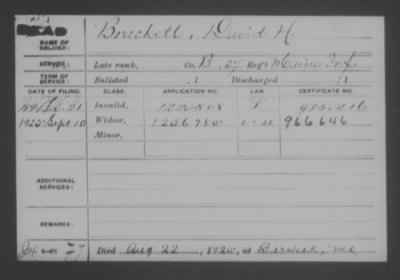 DEAD
NAME OF SOLDIER: Brackett, David H.
SERVICE: Late rank, Co. B, 27 Reg't Maine Inf.
TERM OF SERVICE: Enlisted , 1 Discharged , 1
DATE OF FILING. CLASS. APPLICATION NO. LAW CERTIFICATE NO.
Invalid,
1925 Sept 10 Widow, 966646
Minor,
ADDITIONAL SERVICES:
REMARKS:
Died Aug 22, 1925, at Berwick, Me